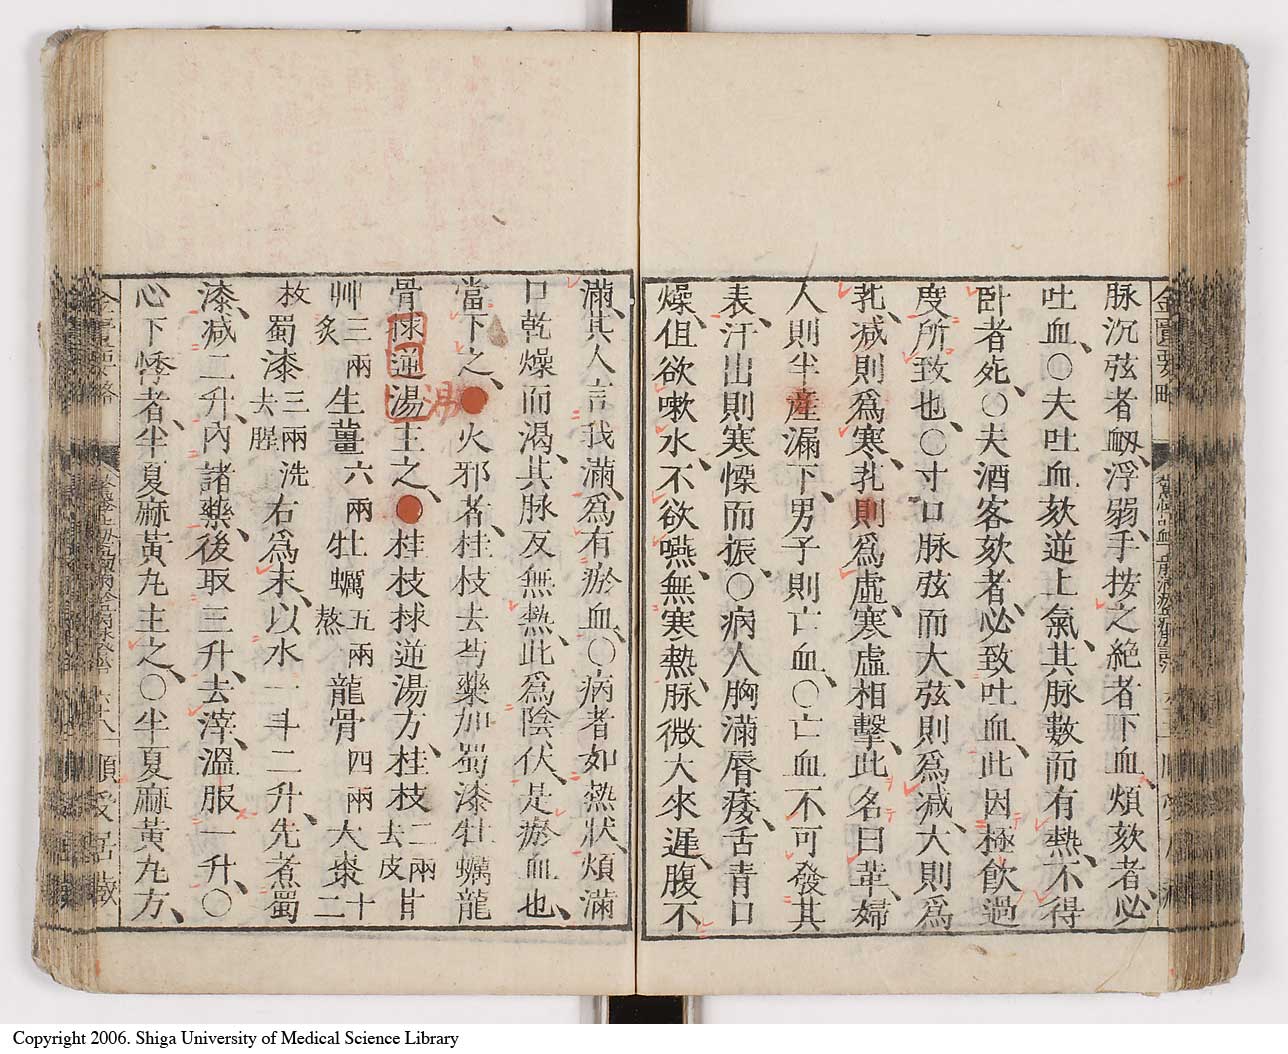 脉沉弦者衂、浮弱、手按之絶者下血、煩欬者、必
吐血、○夫吐血欬逆上氣、其脉數而有熱、不得
卧者死、○夫酒客欬者、必致吐血、此因極飲過
度所致也、○寸口脉弦而大、弦則爲减、大則爲
芤、减則爲寒、芤則爲虛、寒虛相擊、此名曰革、婦
人則半產漏下、男子則亡血、○亡血不可發其
表、汗出則寒慄而振、○病人胸滿脣痿、舌青口
燥、但欲嗽水、不欲嚥、無寒熱、脉微大來遲、腹不
滿、其人言我滿、爲有瘀血、○病者如熱狀、煩滿
口乾燥而渴、其脉反無熱、此爲陰伏、是瘀血也、
當下之、●火邪者、桂枝去芍藥加蜀漆牡蠣龍
骨捄逆湯主之、●桂枝捄逆湯方、桂枝二兩去皮甘
艸三兩炙生薑六兩牡蠣五兩熬龍骨四兩大棗十二
枚蜀漆三兩洗去腥右爲末、以水一斗二升、先煮蜀
漆、减二升、內諸藥、後取三升、去滓、溫服一升、○
心下悸者、半夏麻黃丸主之、○半夏麻黃丸方、
Copyright 2006. Shiga University of Medical Science Library